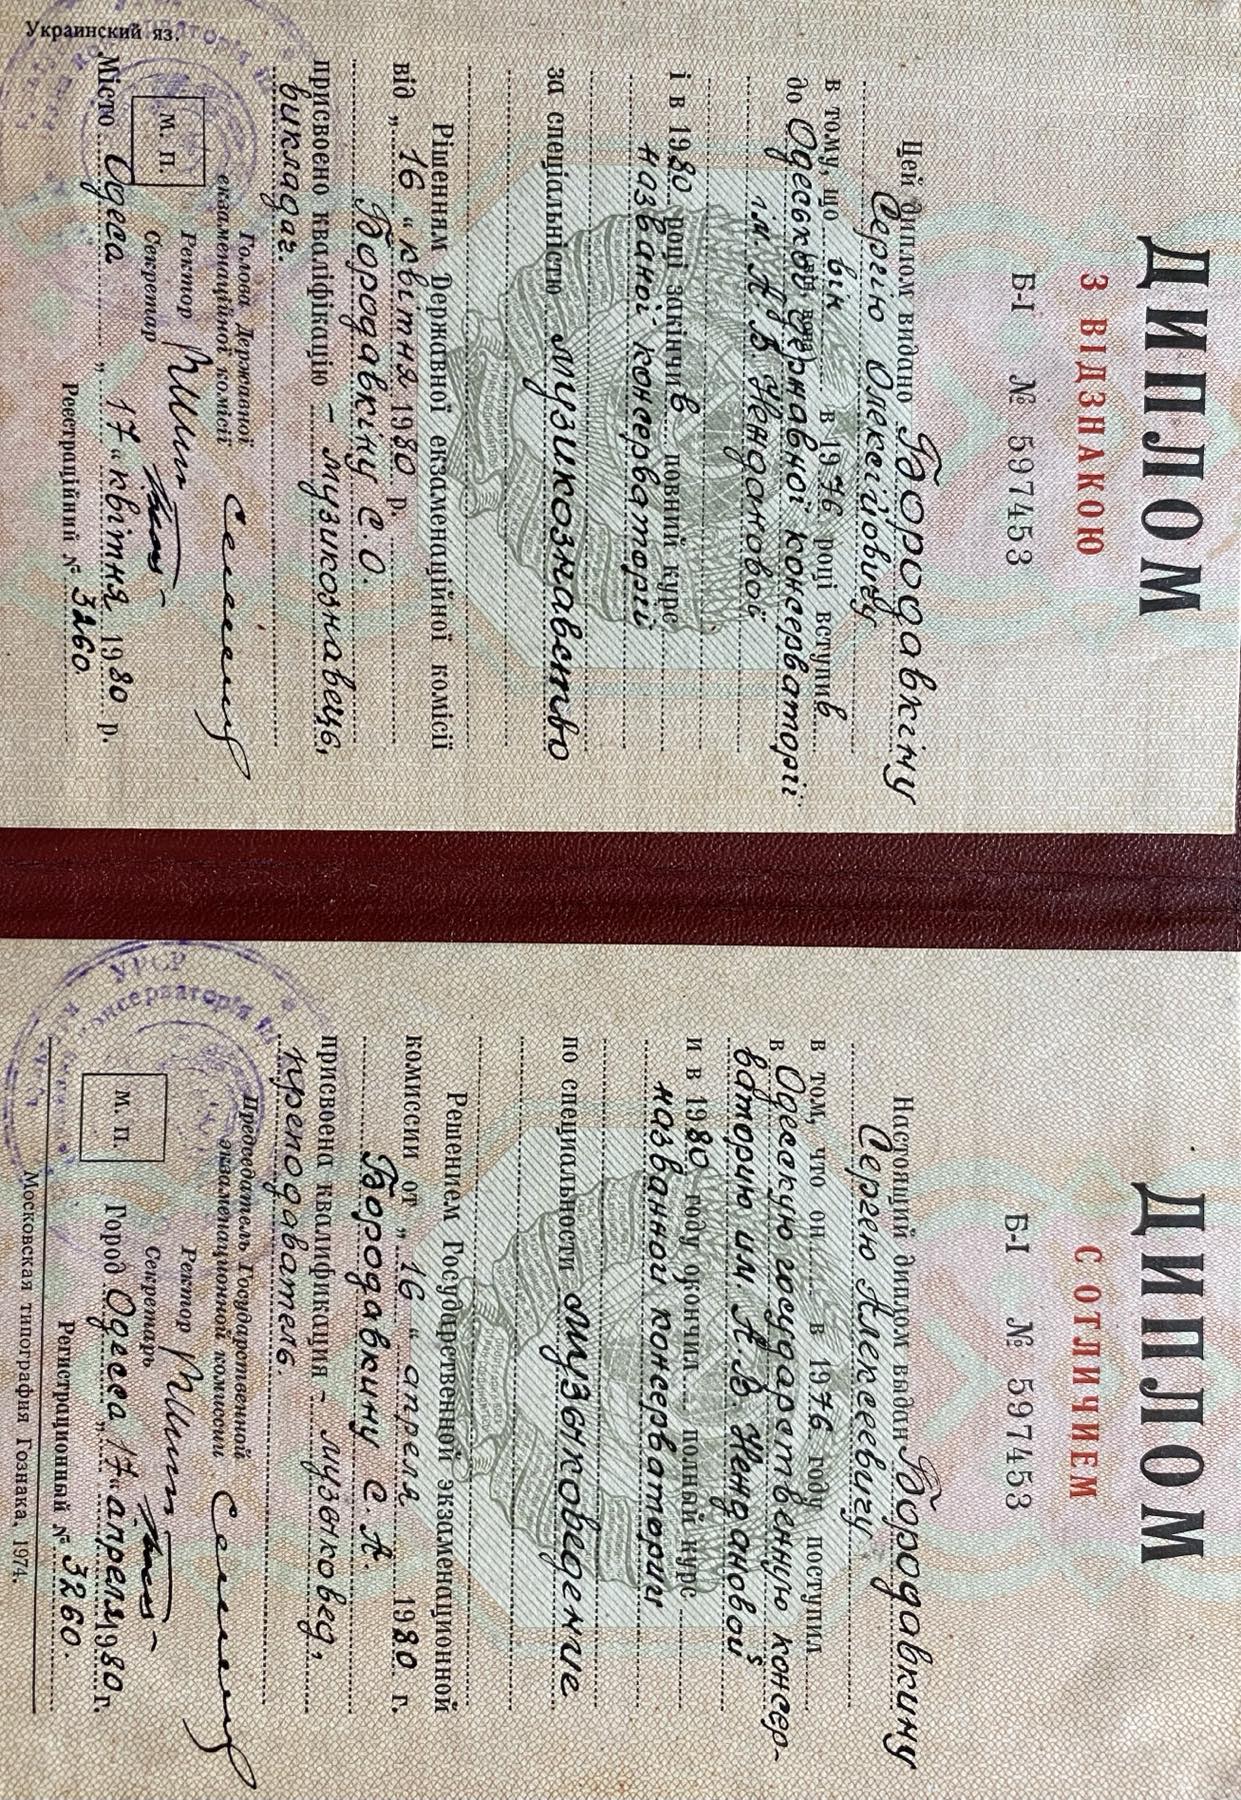 ДИПЛОМ
З ВІДЗНАКОЮ
Б-І № 597453
Цей диплом видано Бородавкіну
Сергію Олексійовичу
в тому, що він в 1976 році вступив
до Одеської державної консерваторії
ім. А. В. Неждановой
і в 1980 році закінчив повний курс
названої консерваторії
за спеціальністю музикознавство
Рішенням Державної екзаменаційної комісії
від „16“ квітня 1980 р.
Бородавкіну С. О.
присвоєно кваліфікацію – музикознавець,
викладач.
Голова Державної
екзаменаційної комісії
Ректор
Секретар
М. П.
Місто Одеса „17“ квітня 1980 р.
Реєстраційний № 3260.
Украинский яз.
ДИПЛОМ
С ОТЛИЧИЕМ
Б-І № 597453
Настоящий диплом выдан Бородавкину
Сергею Алексеевичу
в том, что он в 1976 году поступил
в Одесскую государственную консер-
ваторию им А.В. Неждановой
и в 1980 году окончил полный курс
названной консерватории
по специальности музыковедение
Решением Государственной экзаменационной
комиссии от „16“ апреля 1980 г.
Бородавкину С. А.
присвоена квалификация – музыковед,
преподаватель.
Председатель Государственной
экзаменационной комиссии
Ректор
Секретарь
М. П.
Город Одесса „17“ апреля 1980 г.
Регистрационный № 3260.
Московская типография Гознака. 1974.
УРСР
консерваторія